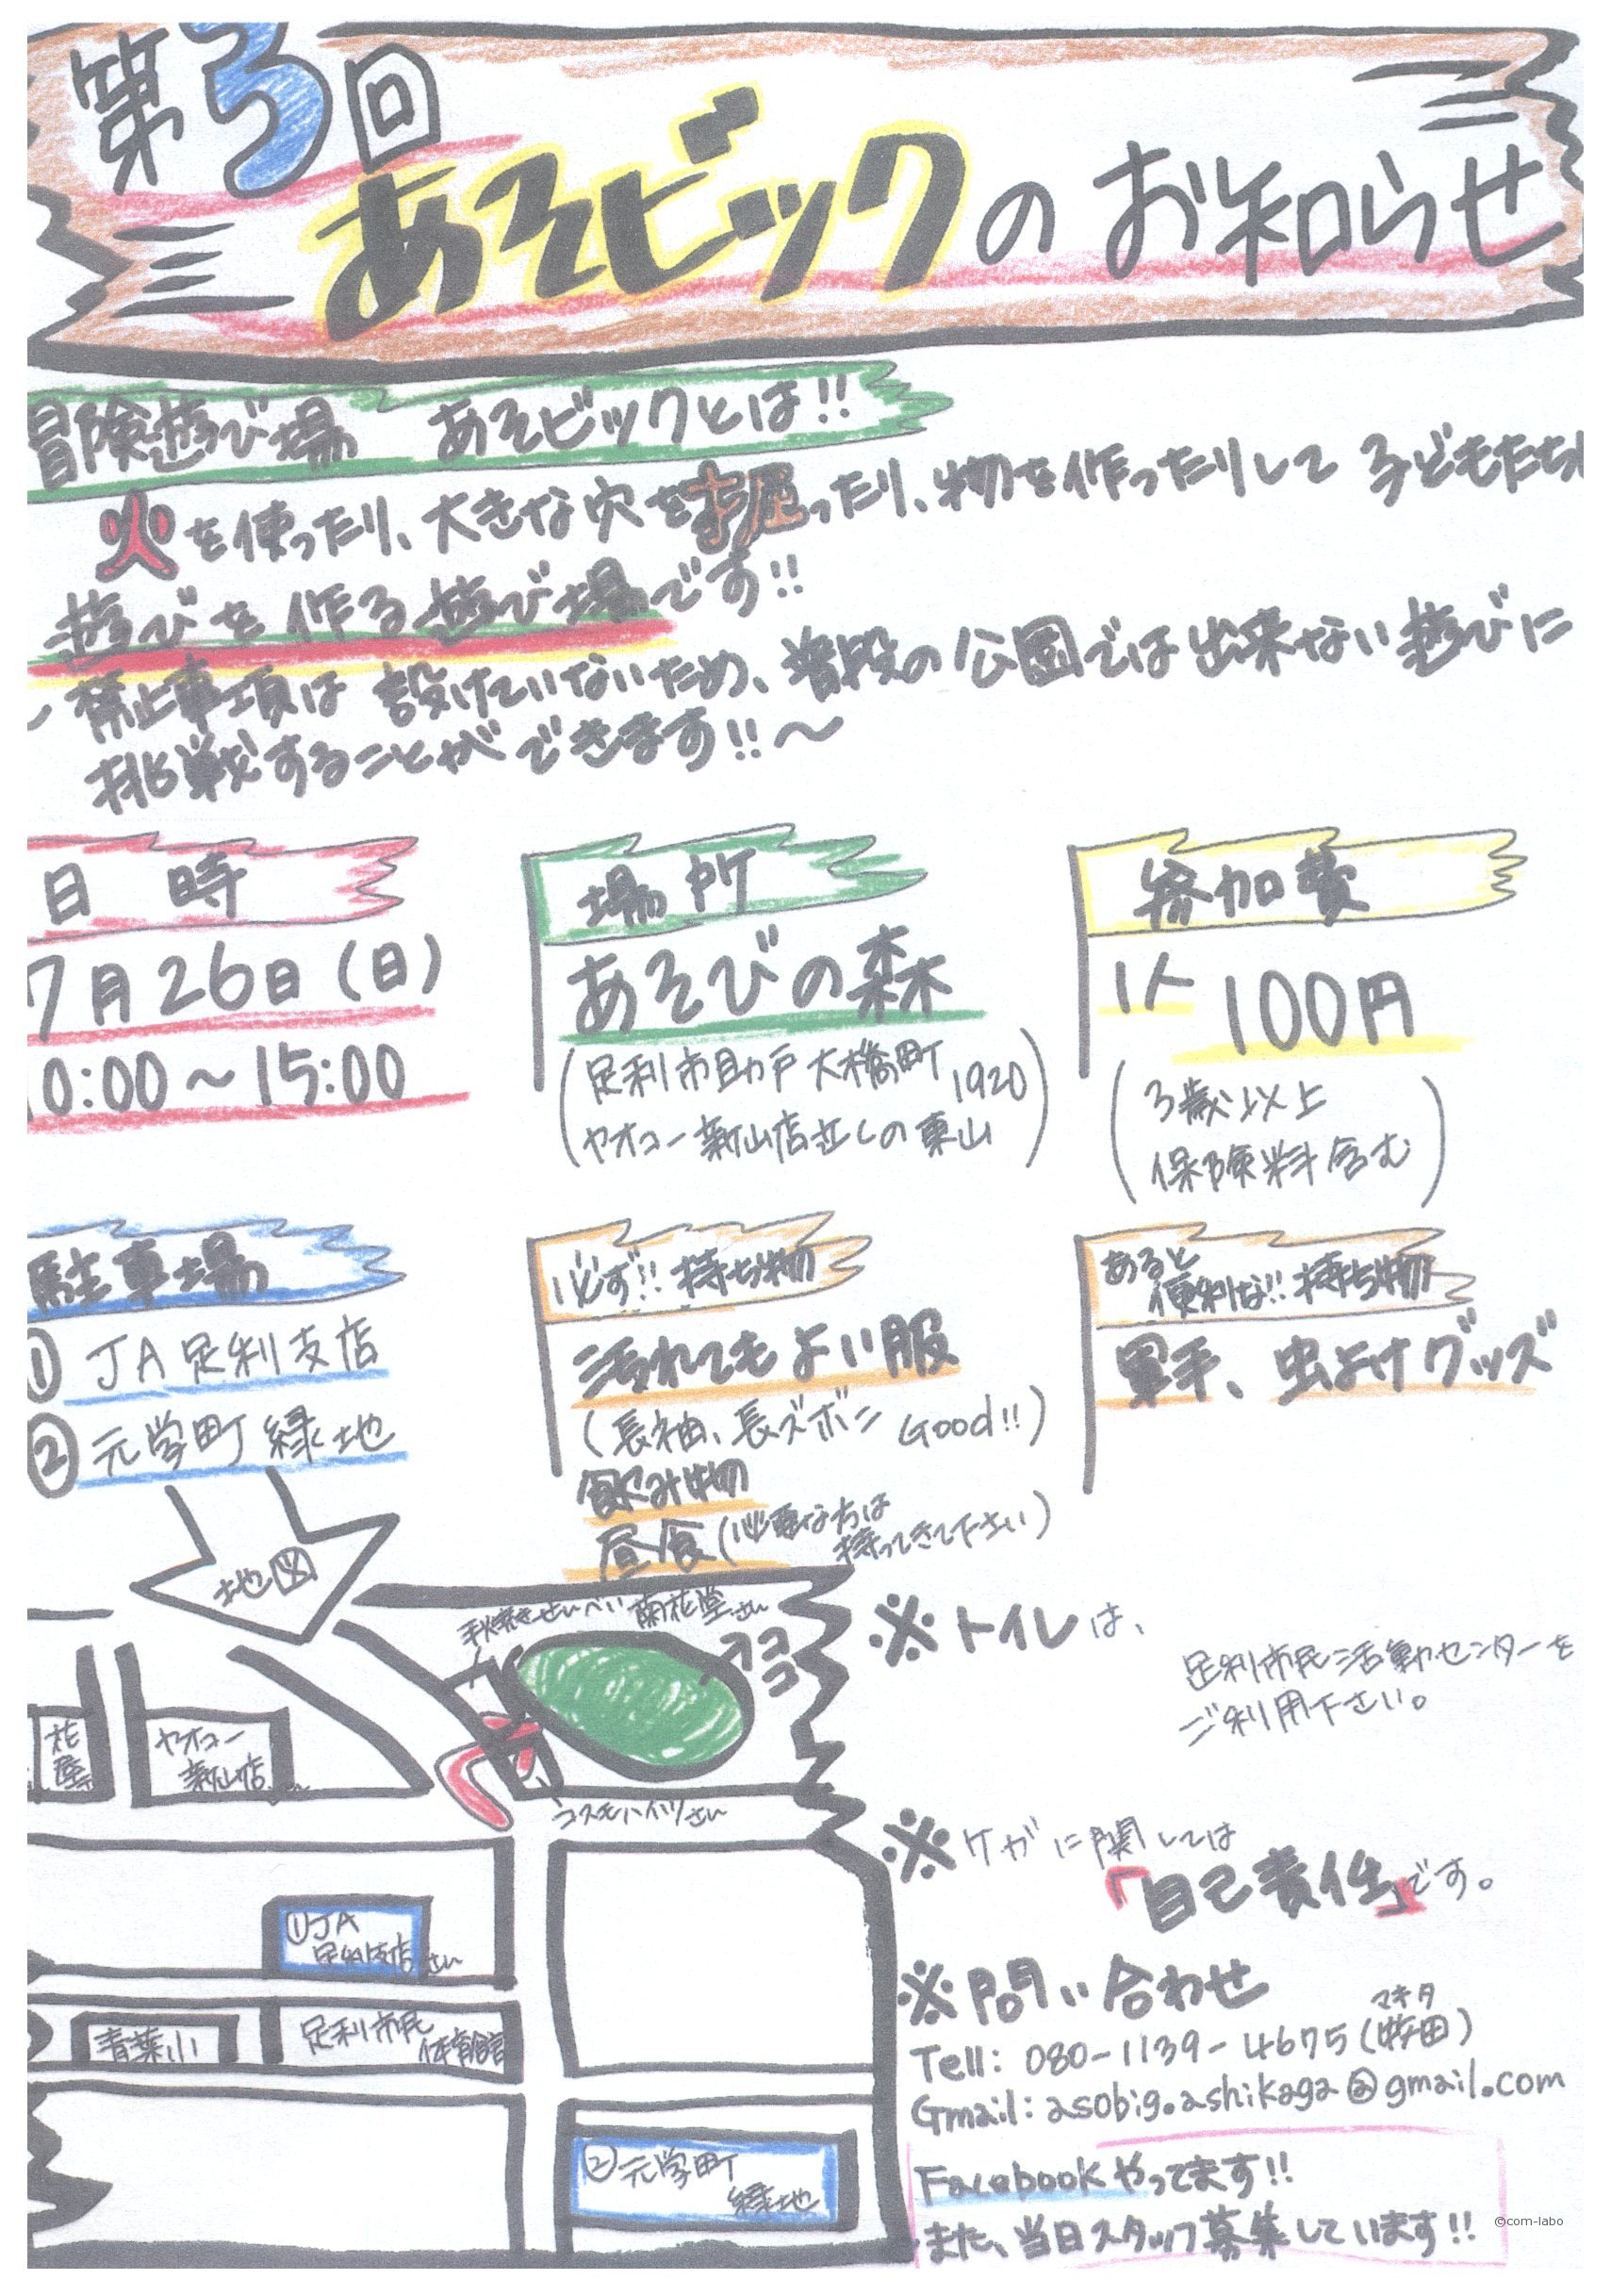 第3回
あそビックのお知らせ
冒険遊び場 あそビックとは!!
火を使ったり、大きな穴を掘ったり、物を作ったりして 子どもたち
遊びを作る遊び場です!!
～禁止事項は 設けていないため、普段の公園では出来ない遊びに
挑戦することができます!!～
日時
7月26日(日)
0:00～15:00
場所
あそびの森
(足利市助戸大橋町1920
ヤオコー新山店近くの東山)
参加費
1人 100円
(3歳以上
保険料含む)
駐車場
① JA足利支店
② 元学町緑地
必ず!! 持ち物
汚れてもよい服
(長袖、長ズボン Good!!)
飲み物
昼食(必要な方は
持ってきて下さい)
あると
便利な!! 持ち物
軍手、虫よけグッズ
地図
手焼きせんべい 蘭花堂さん
ココ
花屋
ヤオコー
新山店
コスモハイツさん
①JA
足利支店さん
青葉小
足利市民
体育館
②元学町
緑地
※トイレは、
足利市民活動センターを
ご利用下さい。
※ケガに関しては
「自己責任」です。
※問い合わせ
マキタ
Tell: 080-1139-4675(牧田)
Gmail: asobig.ashikaga@gmail.com
Facebookやってます!!
また、当日スタッフ募集しています!!
©com-labo